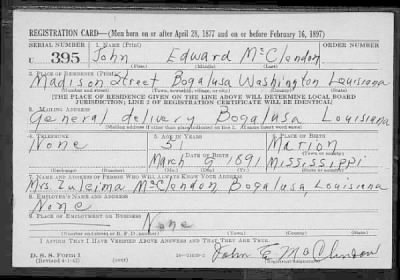 REGISTRATION CARD—(Men born on or after April 28, 1877 and on or before February 16, 1897)
SERIAL NUMBER 1. NAME (Print) ORDER NUMBER
U 395 John Edward McClendon
(First) (Middle) (Last)
2. PLACE OF RESIDENCE (Print)
Madison Street Bogalusa Washington Louisiana
(Number and street) (Town, township, village, or city) (County) (State)
[THE PLACE OF RESIDENCE GIVEN ON THE LINE ABOVE WILL DETERMINE LOCAL BOARD
JURISDICTION; LINE 2 OF REGISTRATION CERTIFICATE WILL BE IDENTICAL]
3. MAILING ADDRESS
General delivery Bogalusa Louisiana
[Mailing address if other than place indicated on line 2. If same insert word same]
4. TELEPHONE 5. AGE IN YEARS 6. PLACE OF BIRTH
None 51 Marion
DATE OF BIRTH (Town or county)
March 9 1891 Mississippi
(Exchange) (Number) (Mo.) (Day) (Yr.) (State or country)
7. NAME AND ADDRESS OF PERSON WHO WILL ALWAYS KNOW YOUR ADDRESS
Mrs. McClendon Bogalusa, Louisiana
8. EMPLOYER'S NAME AND ADDRESS
None
9. PLACE OF EMPLOYMENT OR BUSINESS
None
(Number and street or R. F. D. number) (Town) (County) (State)
I AFFIRM THAT I HAVE VERIFIED ABOVE ANSWERS AND THAT THEY ARE TRUE.
D. S. S. Form 1
(Revised 4-1-42) (over) John E McClendon
(Registrant's signature)